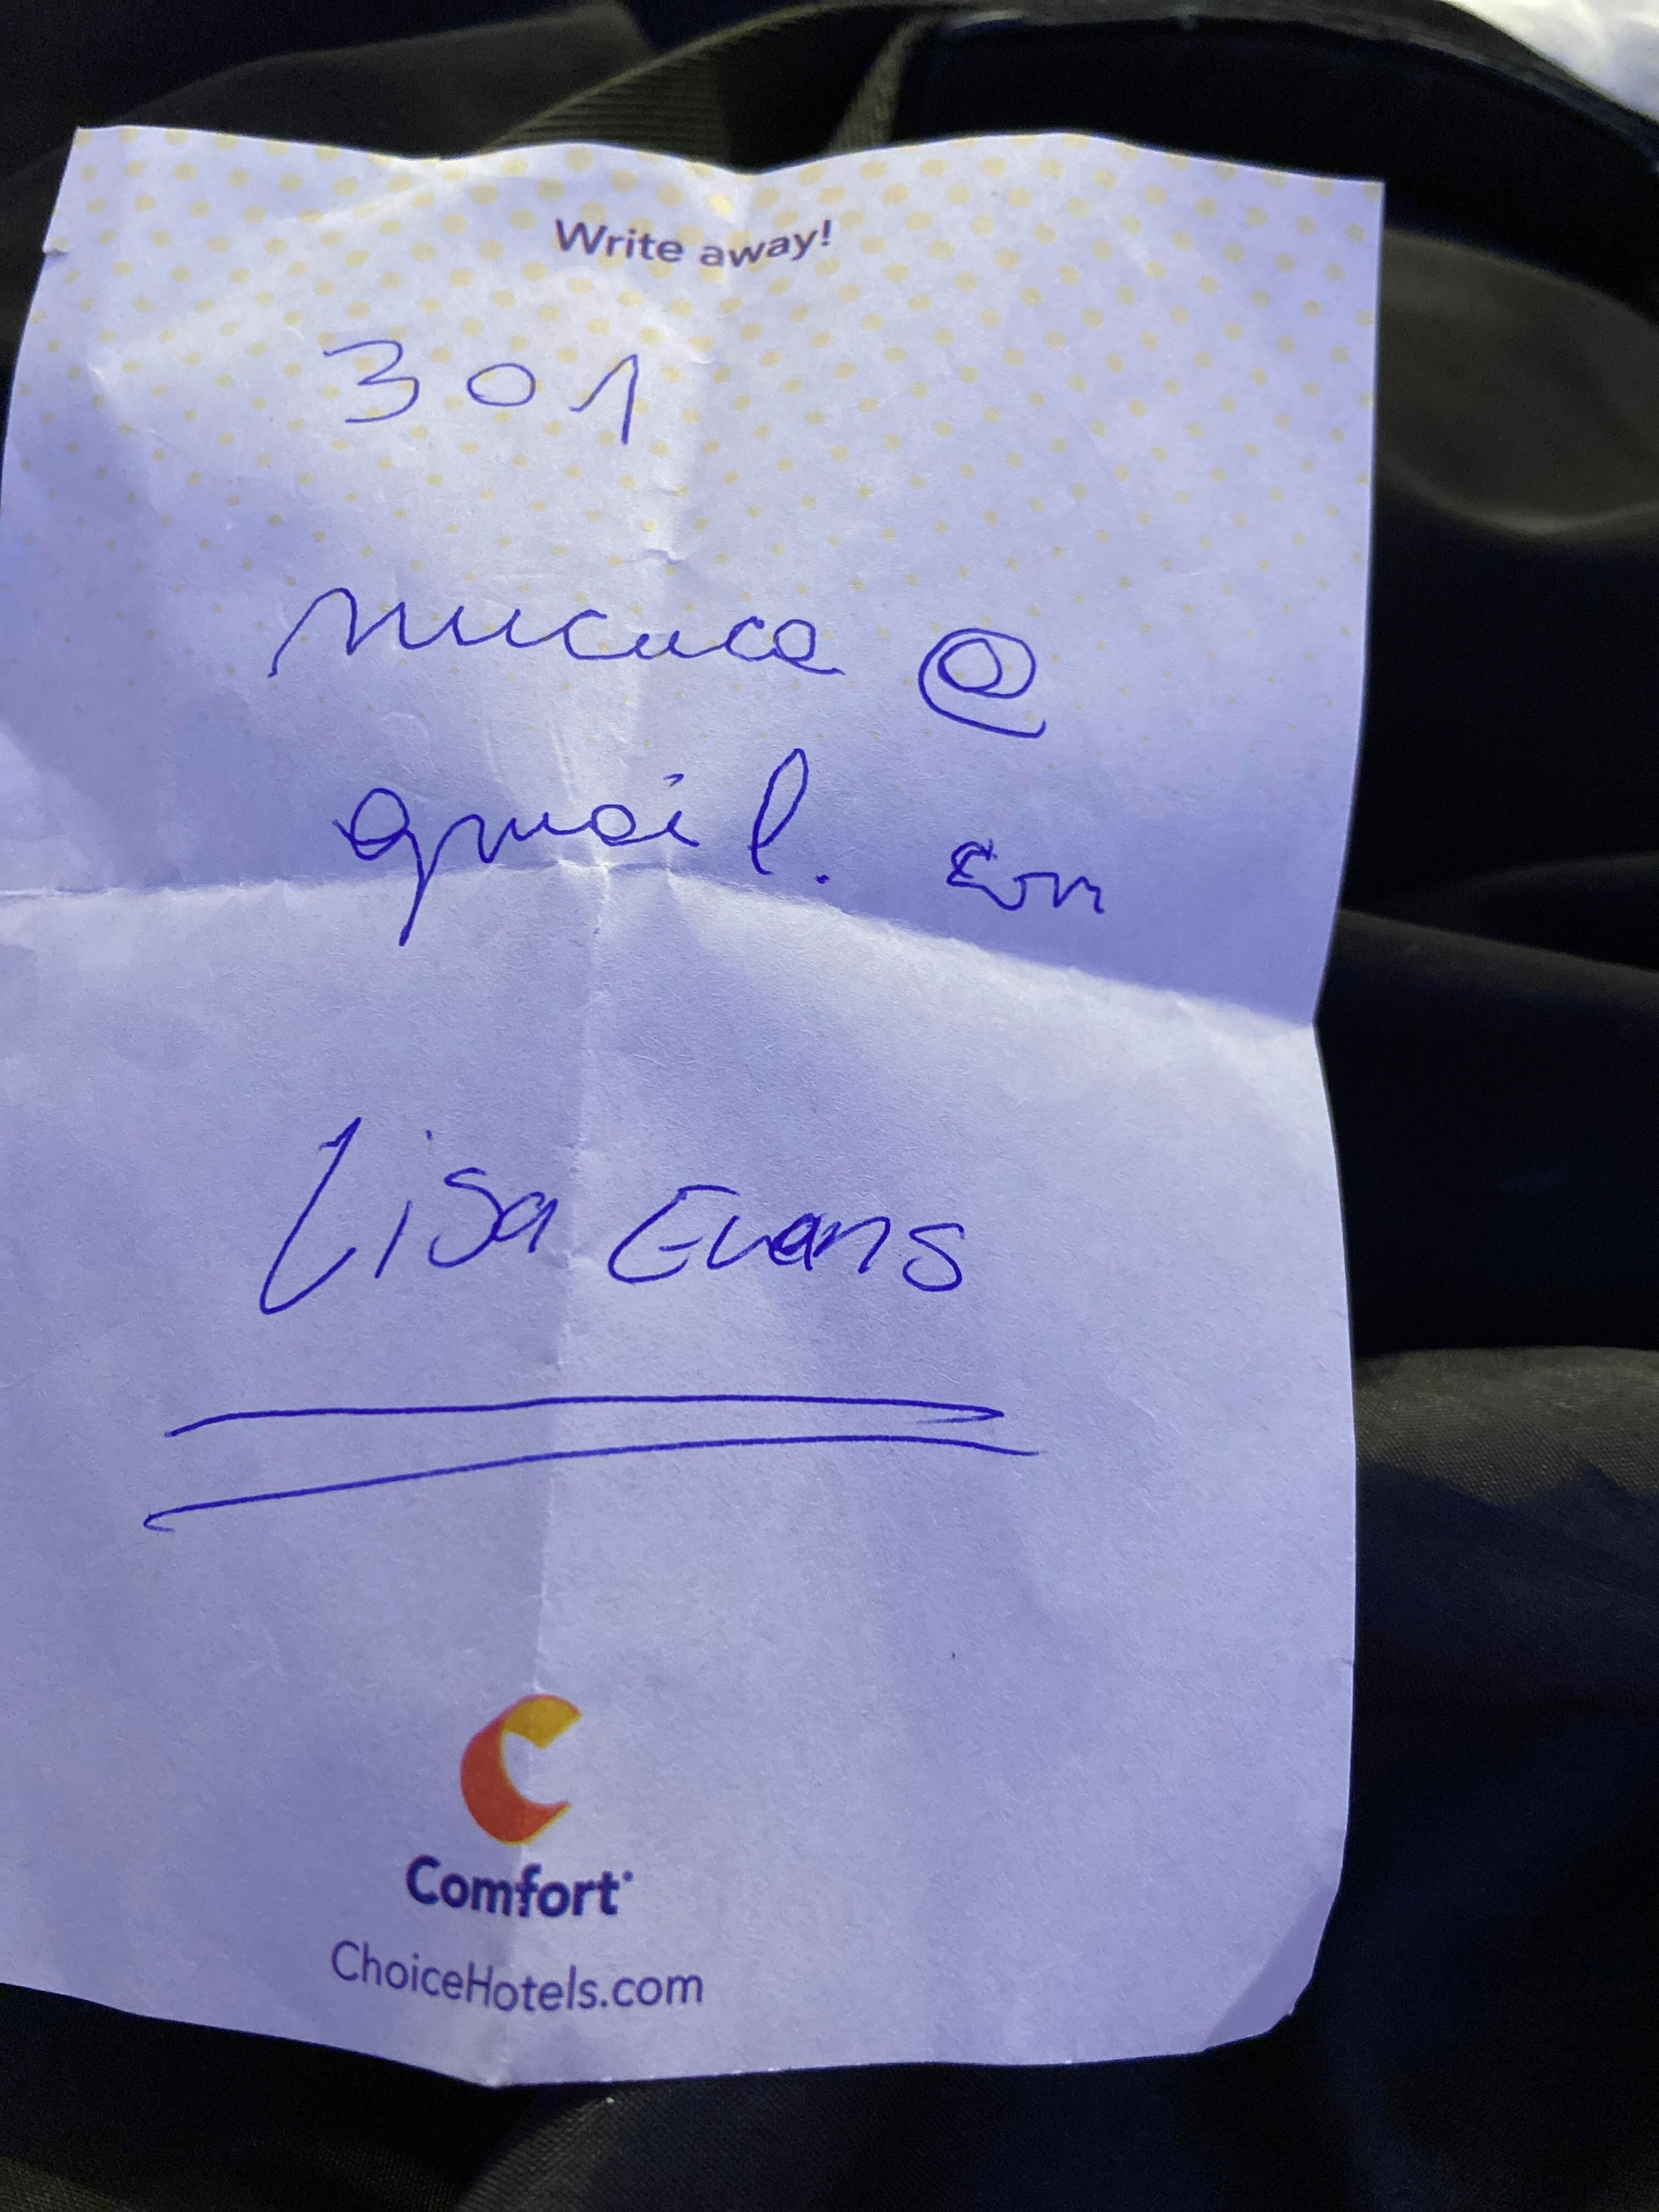 Write away!
301
@
gmail. com
Lisa Evans
Comfort
ChoiceHotels.com